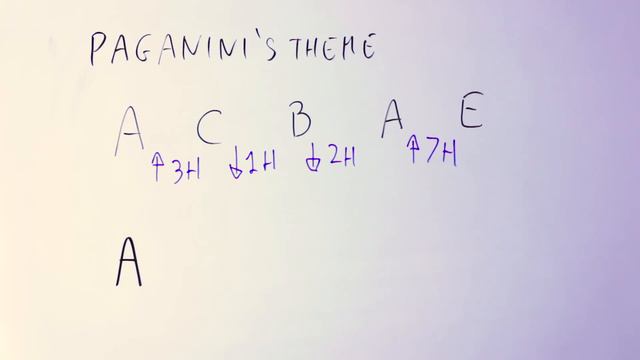 PAGANINI'S THEME
A C B A E
↑3H ↓1H ↓2H ↑7H
A